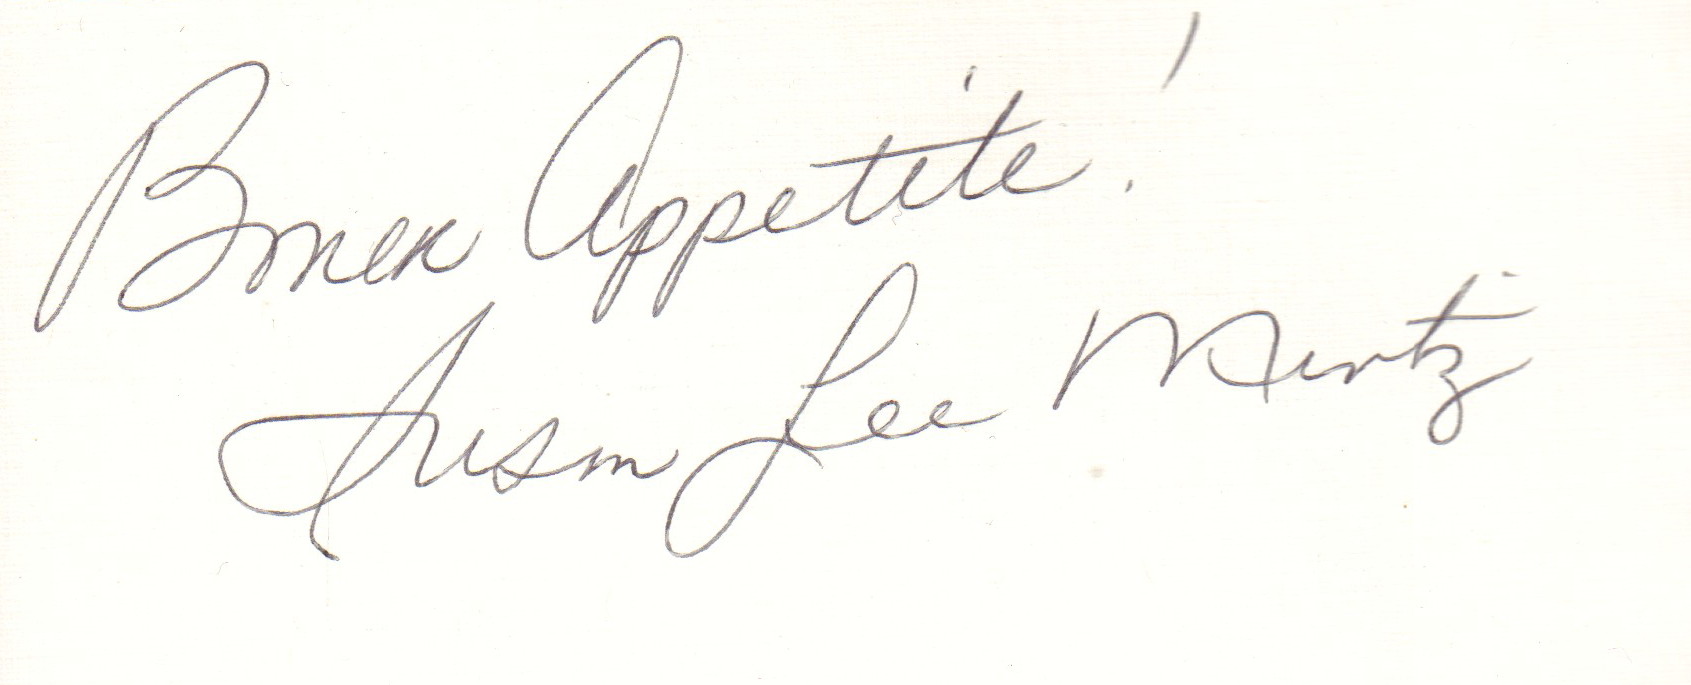 Bonen Appetite!
Susan Lee Mintz